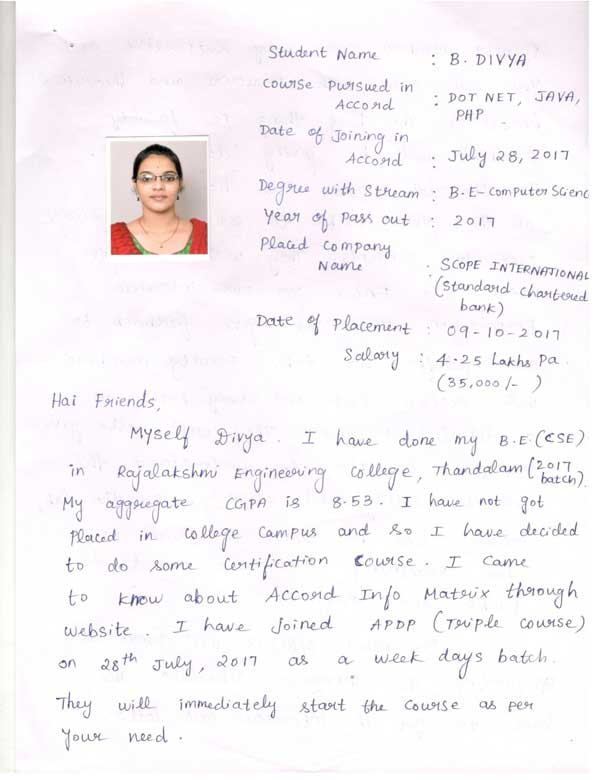 Student Name : B. DIVYA
Course Pursued in
Accord : DOT NET, JAVA,
PHP
Date of Joining in
Accord : July 28, 2017
Degree with Stream : B.E-Computer Scienc
Year of Pass out : 2017
Placed Company
Name : SCOPE INTERNATIONAL
(Standard Chartered
bank)
Date of Placement : 09-10-2017
Salary : 4.25 Lakhs Pa.
(35,000/-)
Hai Friends,
Myself Divya. I have done my B.E.(CSE)
in Rajalakshmi Engineering College, Thandalam (2017
batch).
My aggregate CGPA is 8.53. I have not got
placed in college campus and so I have decided
to do some certification course. I came
to know about Accord Info Matrix through
website. I have joined APDP (Triple course)
on 28th July, 2017 as a week days batch.
They will immediately start the course as per
your need.